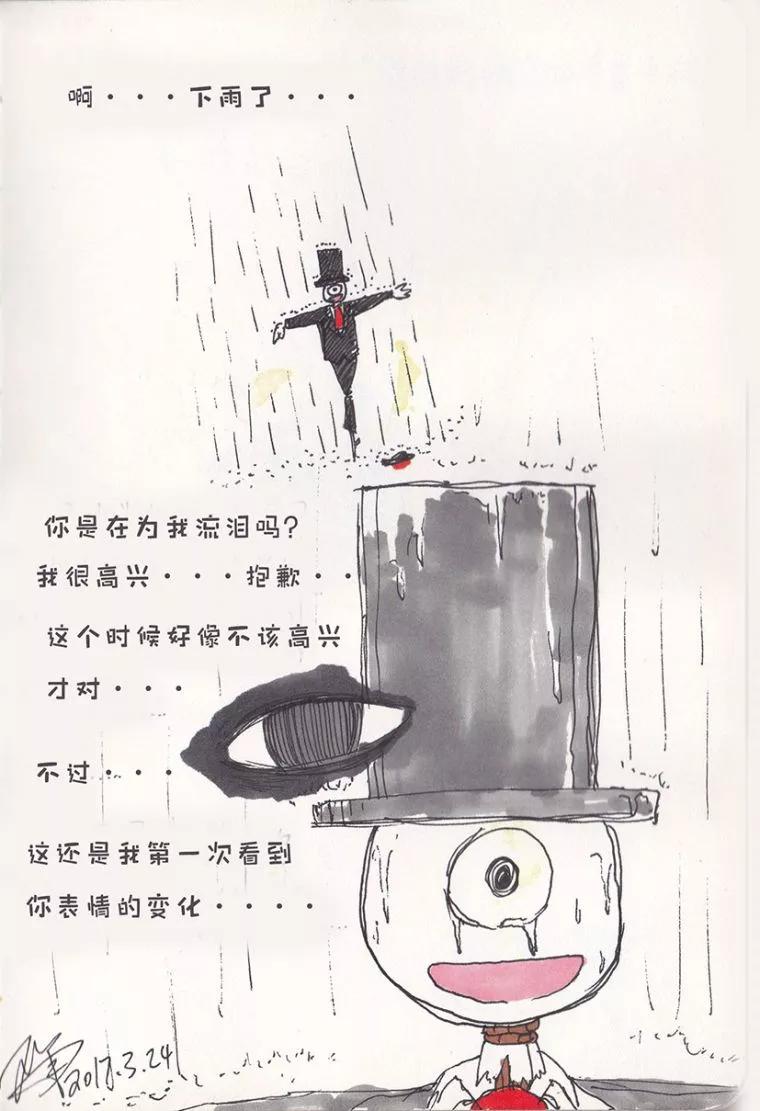 啊・・・下雨了・・・
你是在为我流泪吗?
我很高兴・・・抱歉・・
这个时候好像不该高兴
才对・・・
不过・・・
这还是我第一次看到
你表情的变化・・・・
2017.3.24